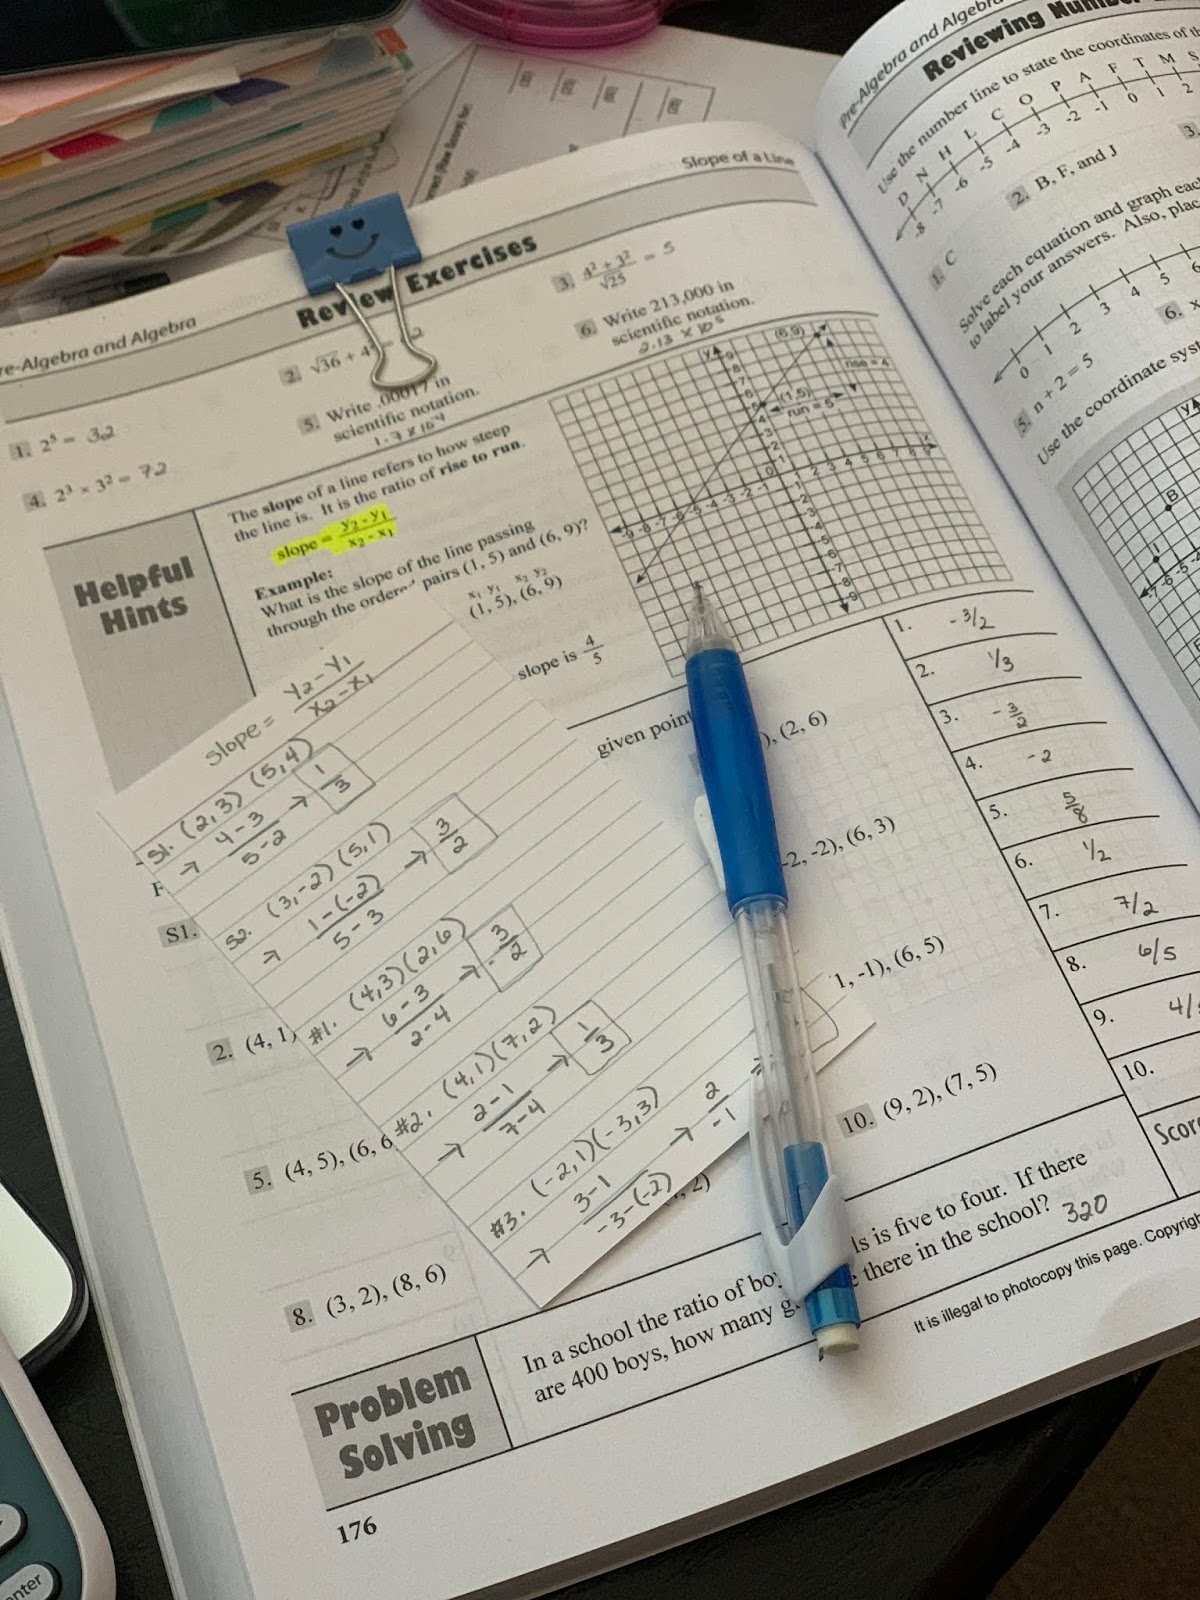 Pre-Algebra and Algebra
Slope of a Line
Review Exercises
1. 2⁵ = 32
2. √36 + 4
3. 4² + 3² / √25 = 5
4. 2³ × 3² = 72
5. Write .00017 in
scientific notation.
6. Write 213,000 in
scientific notation.
2.13 × 10⁵
Helpful
Hints
The slope of a line refers to how steep
the line is. It is the ratio of rise to run.
slope = y₂ - y₁ / x₂ - x₁
Example:
What is the slope of the line passing
through the ordered pairs (1, 5) and (6, 9)?
x₁ y₁ x₂ y₂
(1, 5), (6, 9)
slope is 4/5
(6,9)
rise = 4
(1,5)
run = 5
Slope = y₂ - y₁ / x₂ - x₁
S1. (2,3) (5,4)
→ 4-3 / 5-2 → 1/3
S2. (3,-2) (5,1)
→ 1-(-2) / 5-3 → 3/2
#1. (4,3)(2,6)
→ 6-3 / 2-4 → -3/2
#2. (4,1)(7,2)
→ 2-1 / 7-4 → 1/3
#3. (-2,1)(-3,3)
→ 3-1 / -3-(-2) → 2/-1 =
given point
), (2, 6)
S1.
-2, -2), (6, 3)
2. (4, 1)
1, -1), (6, 5)
5. (4, 5), (6, 6
, 2)
8. (3, 2), (8, 6)
10. (9, 2), (7, 5)
1. -3/2
2. 1/3
3. -3/2
4. -2
5. 5/8
6. 1/2
7. 7/2
8. 6/5
9. 4/
10.
Score
Problem
Solving
In a school the ratio of boy ls is five to four. If there
are 400 boys, how many g e there in the school? 320
It is illegal to photocopy this page. Copyrigh
176
Pre-Algebra and Algebra
Reviewing Number
Use the number line to state the coordinates of th
D N H L C O P A F T M S
-8 -7 -6 -5 -4 -3 -2 -1 0 1 2
1. C
2. B, F, and J
3.
Solve each equation and graph each
to label your answers. Also, plac
0 1 2 3 4 5 6
5. n + 2 = 5
6. x
Use the coordinate syst
B
enter